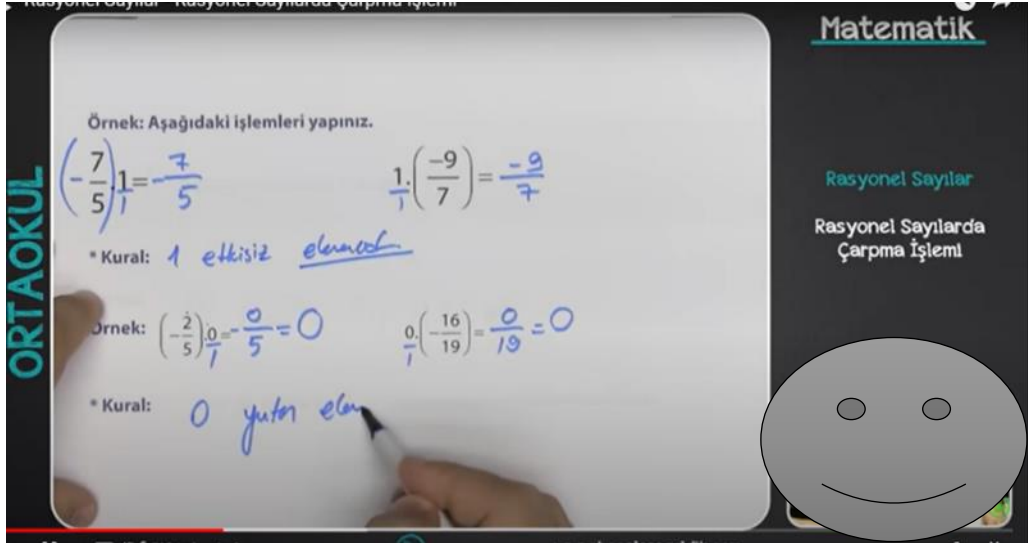 Rasyonel Sayılar - Rasyonel Sayılarda Çarpma İşlemi
Matematik
ORTAOKUL
Örnek: Aşağıdaki işlemleri yapınız.
(-7/5).1/1=-7/5
1/1.(-9/7)=-9/7
* Kural: 1 etkisiz eleman
Örnek: (-2/5).0/1=-0/5=0
0/1.(-16/19)=0/19=0
* Kural: 0 yutan elem
Rasyonel Sayılar
Rasyonel Sayılarda
Çarpma İşlemi